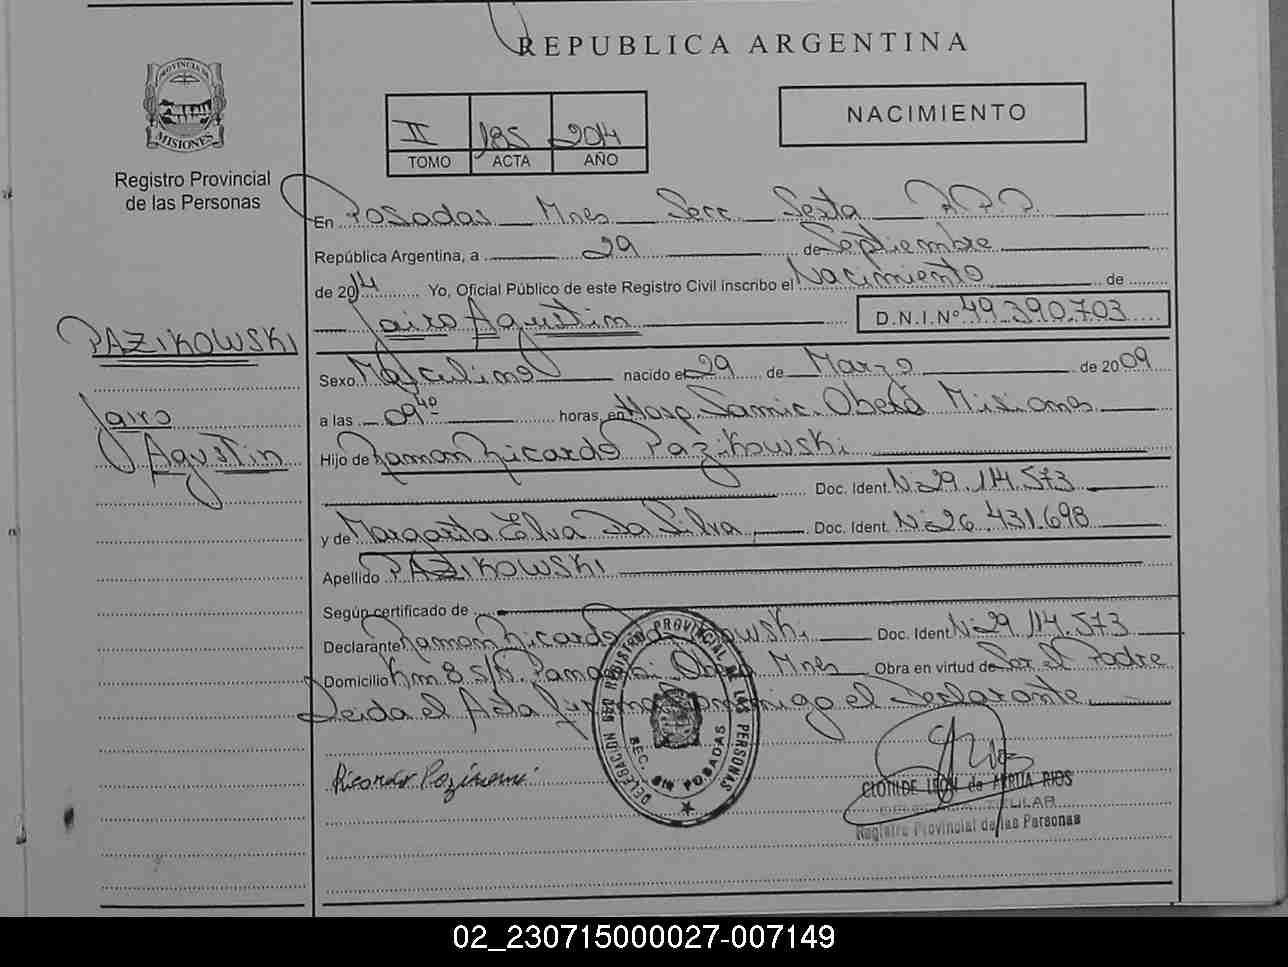 REPUBLICA ARGENTINA
PROVINCIA DE
MISIONES
Registro Provincial
de las Personas
II 185 2014
TOMO ACTA AÑO
NACIMIENTO
En Posadas Mnes Secc Sexta R.P.P.
República Argentina, a 29 de Septiembre
de 2014 Yo, Oficial Público de este Registro Civil inscribo el Nacimiento de
Jairo Agustin D.N.I.Nº 49.390.703
PAZIKOWSKI
Jairo
Agustin
Sexo Masculino nacido el 29 de Marzo de 2009
a las 09 40 horas, en Hosp. Samic. Oberá Misiones
Hijo de Ramon Ricardo Pazikowski
Doc. Ident. Nº 29.114.573
y de Margarita Elva Da Silva Doc. Ident. Nº 26.431.698
Apellido PAZIKOWSKI
Según certificado de
Declarante Ramon Ricardo Pazikowski Doc. Ident. Nº 29.114.573
Domicilio Km 8 s/n. Panambi Oberá Mnes Obra en virtud de Ser el Padre
Leida el Acta firma conmigo el Declarante
Ricardo
DELEGACION DEL REGISTRO PROVINCIAL DE LAS PERSONAS
SEC. 6ta POSADAS
CLOTILDE LEON de RIOS
TITULAR
Registro Provincial de las Personas
02_230715000027-007149